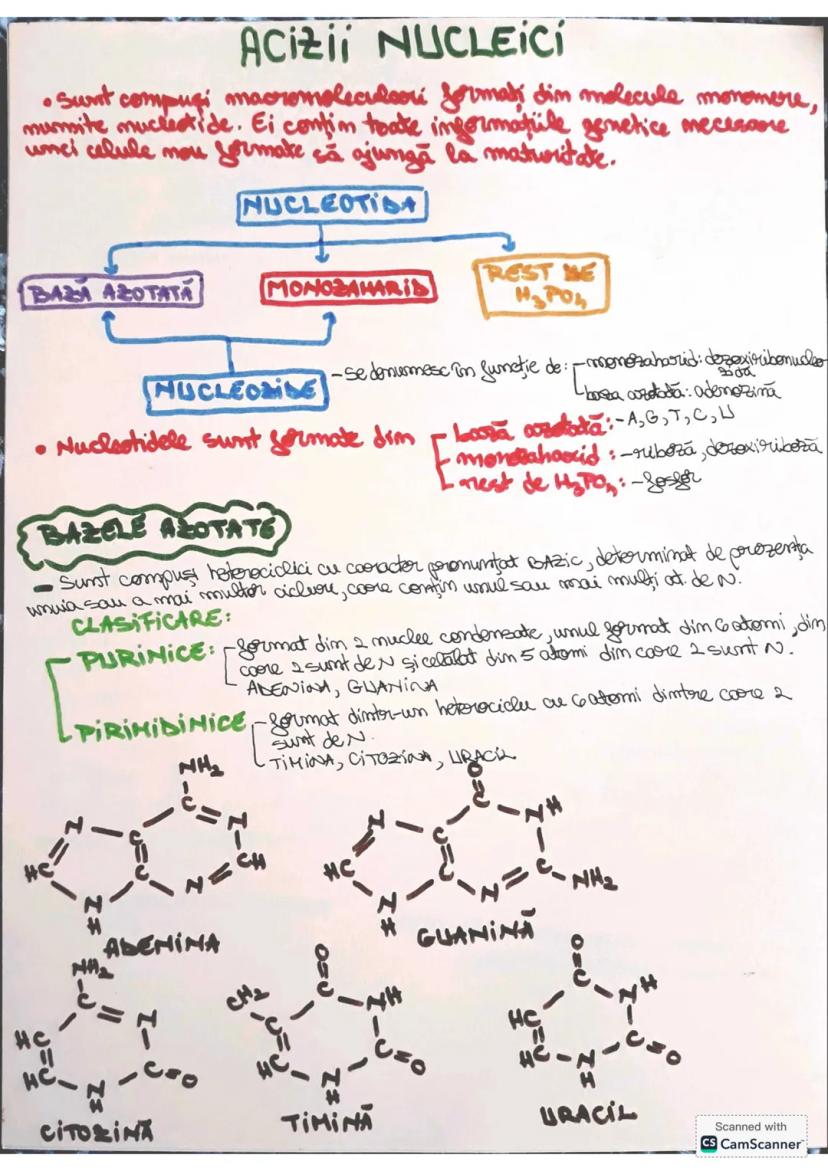 ACIZII NUCLEICI
• Sunt compuși macromoleculari formați din molecule monomere,
numite nucleotide. Ei conțin toate informațiile genetice necesare
unei celule nou formate să ajungă la maturitate.
NUCLEOTIDA
BAZĂ AZOTATĂ
MONOZAHARID
REST DE
H3PO4
NUCLEOZIDE
- se denumesc în funcție de:
- monozaharid: dezoxiribonucleo
zidă
baza azotată: adenozină
• Nucleotidele sunt formate din
bază azotată: - A, G, T, C, U
monozaharid: - riboză, dezoxiriboză
rest de H3PO4: - fosfor
BAZELE AZOTATE
- Sunt compuși heterociclici cu caracter pronunțat BAZIC, determinat de prezența
unuia sau a mai multor cicluri, care conțin unul sau mai mulți at. de N.
CLASIFICARE:
PURINICE:
- format din 2 nuclee condensate, unul format din 6 atomi, din
care 2 sunt de N și celălalt din 5 atomi din care 2 sunt N.
ADENINA, GUANINA
PIRIMIDINICE
- format dintr-un heterociclu cu 6 atomi dintre care 2
sunt de N.
TIMINA, CITOZINA, URACIL
NH2
C
N
CH
N
C
C
N
HC
N
H
ADENINA
O
C
N H
C
NH2
N
C
C
N
HC
N
H
GUANINĂ
NH2
C
N
C=O
N
H
HC
HC
CITOZINĂ
O
C
NH
C=O
N
H
HC
C
CH2
TIMINĂ
O
C
N H
C=O
N
H
HC
HC
URACIL
Scanned with
CS CamScanner